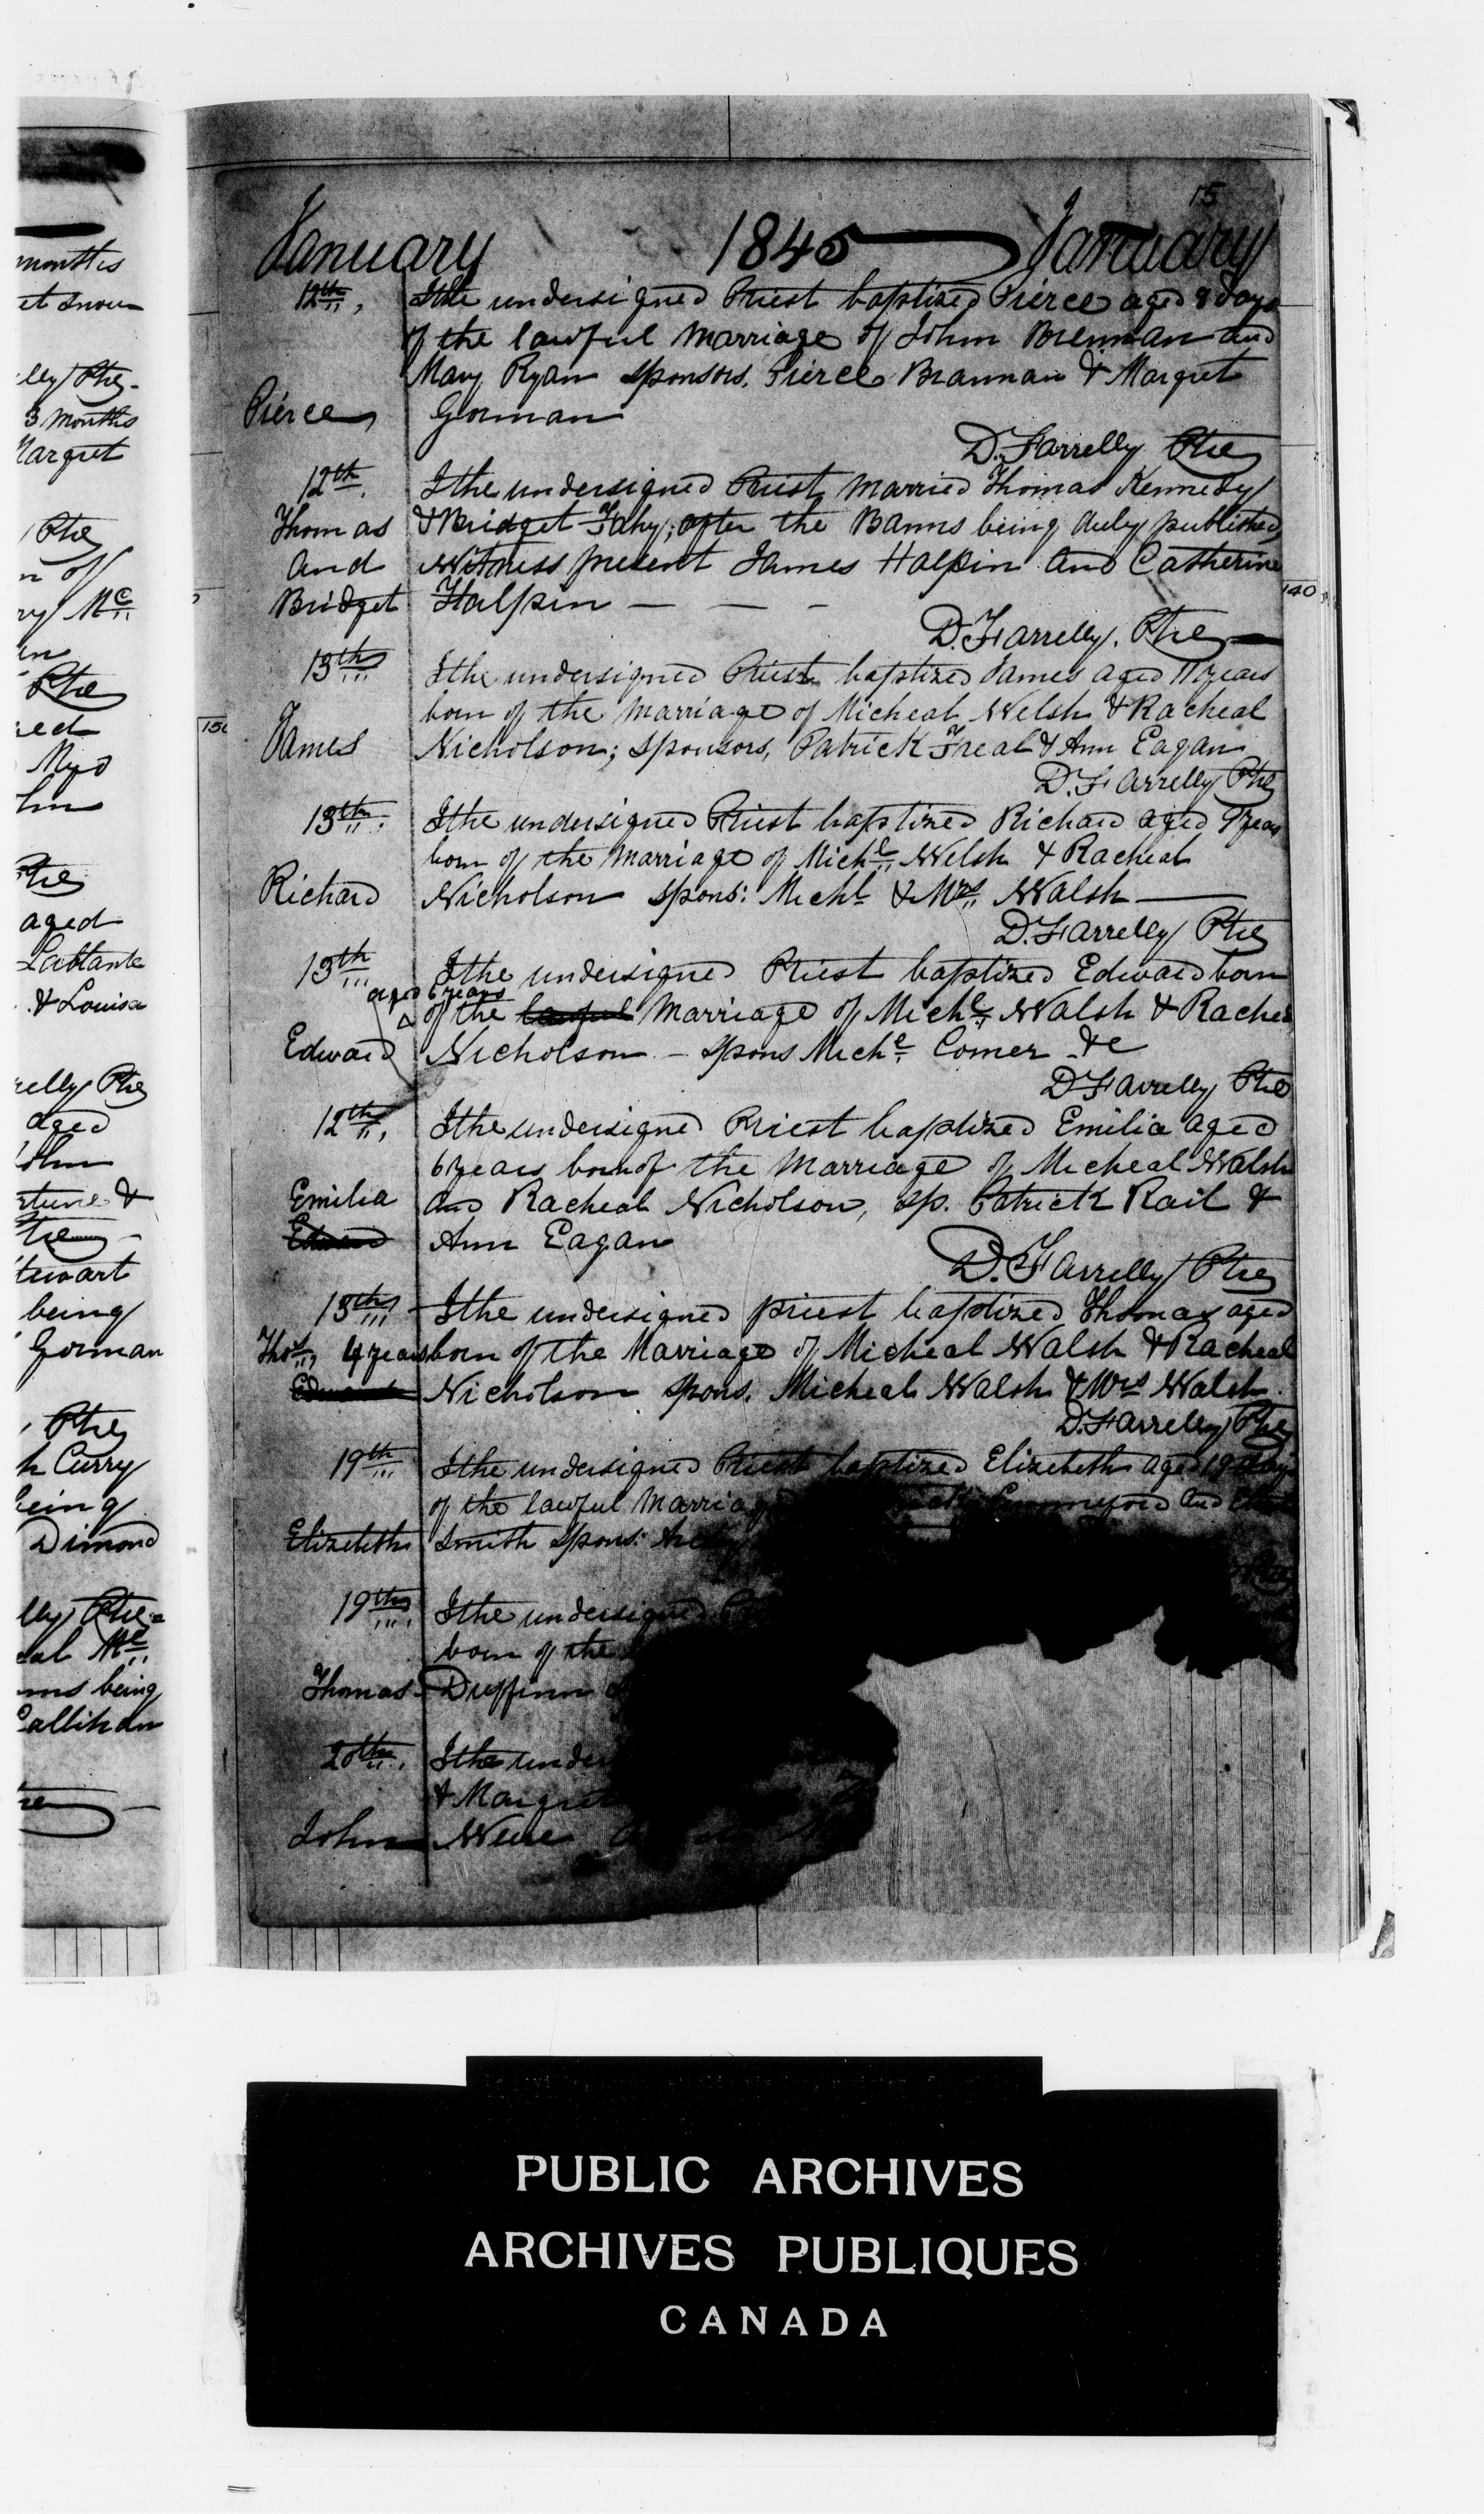 months
et Snow
lly Ptre
3 months
Margret
Ptre
n of
ry Mc
Ptre
ed
Ptre
aged
Lablante
& Louisa
relly Ptre
aged
John
rtune &
Stewart
being
Gorman
Ptre
h Curry
being
Dimond
lly Ptre
eal Mc
being
Callihan
15
January 1845 January
12th, I the undersigned Priest baptized Pierce aged 8 days
of the lawful Marriage of John Brennan and
Mary Ryan sponsors. Pierce Brannan & Margret
Pierce Gorman
D. Farrelly Ptre
12th. I the undersigned Priest married Thomas Kennedy
Thomas & Bridget Fahy; after the Banns being duly published,
and Witness present James Halpin and Catherine
Bridget Halpin — — —
140
D. Farrelly. Ptre
13th I the undersigned Priest baptized James aged 11 years
born of the marriage of Micheal Welsh & Racheal
James Nicholson; sponsors, Patrick Freal & Ann Eagan
D. Farrelly Ptre
13th I the undersigned Priest baptized Richard aged 9 years
born of the Marriage of Michl Welsh & Racheal
Richard Nicholson spons: Michl & Mrs Walsh —
D. Farrelly Ptre
13th I the undersigned Priest baptized Edward born
aged 6 years
of the lawful Marriage of Michl Walsh & Rachel
Edward Nicholson - spons Michl Comer &c
D Farrelly Ptre
12th, I the undersigned Priest baptized Emilia aged
6 years born of the Marriage of Micheal Walsh
Emilia and Racheal Nicholson, sp. Patrick Rail &
Edward Ann Eagan
D. Farrelly Ptre
13th I the undersigned priest baptized Thomas aged
Thos, 4 years born of the Marriage of Micheal Walsh & Racheal
Nicholson spons. Micheal Walsh & Mrs Walsh.
D. Farrelly Ptre
19th I the undersigned Priest baptized Elizebeth aged 19 days
of the lawful Marriage and
Elizebeth Smith spons:
19th I the undersigned
born of the
Thomas Duffinn
20th. I the under
& Margret
John Were
PUBLIC ARCHIVES
ARCHIVES PUBLIQUES
CANADA